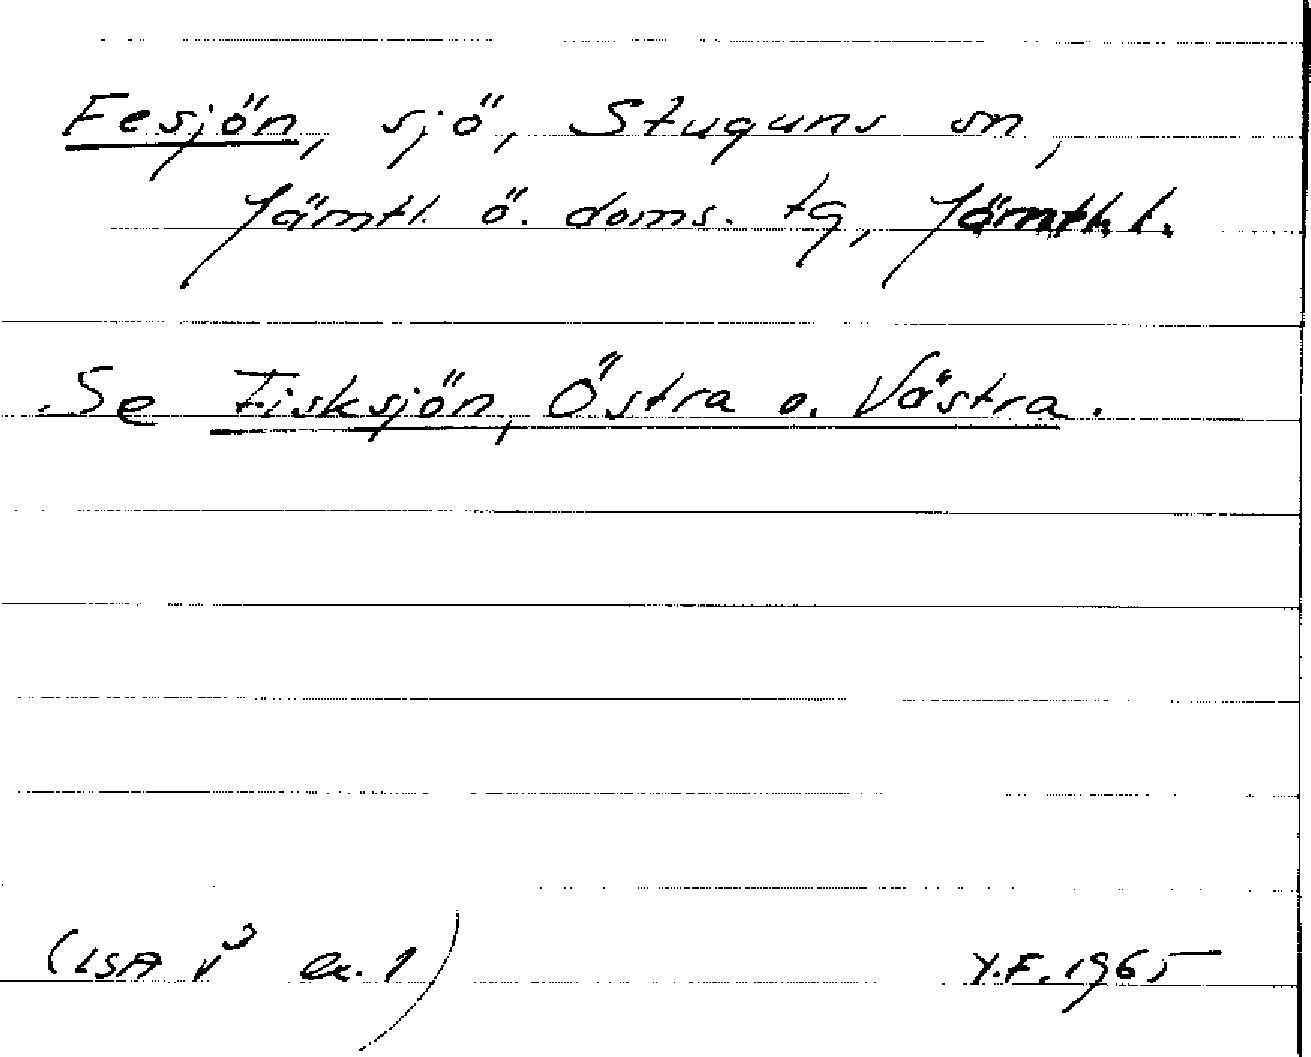 Fesjön, sjö, Stuguns sn,
Jämtl. ö. doms. tg, Jämtl. l.
Se Fisksjön, Östra o. Västra.
(LSA V³ ek. 1) Y.F. 1965